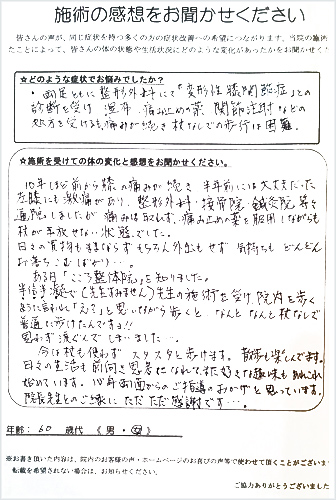 施術の感想をお聞かせください
皆さんの声が、同じ症状を持つ多くの方の症状改善への希望につながります。当院の施術
たことによって、皆さんの体の状態や生活状況にどのような変化があったかをお聞かせく
☆どのような症状でお悩みでしたか？
・両足ともに整形外科にて「変形性膝関節症」との
診断を受け 湿布 痛み止めの薬 関節注射などの
処方を受けるも痛みが続き杖なしでの歩行は困難。
☆施術を受けての体の変化と感想をお聞かせください。
10年ほど前から膝の痛みが続き 半年前には大丈夫だった
左膝にも激痛があり、整形外科・接骨院・鍼灸院 等々
通院しましたが 痛みは取れず、痛み止めの薬を服用しながらも
杖が手放せない状態でした。
日々の買物もままならず もちろん外出もせず 気持ちも どんどん
落ち込むばかり…。
ある日「こころ整体院」を知りました。
半信半疑で(先生すみません)先生の施術を受け、院内を歩く
ように言われ「え？」と思いながら歩くと なんと なんと 杖なしで
普通に歩けたんですョ!!
思わず涙ぐんでしまいました…
今は杖も使わず スタスタと歩けます。散歩も楽しんでます。
日々の生活も前向き思考になれて、また好きな趣味も
始めています。10年計画からのご指導のおかげと思っています。
院長先生とのご縁に ただただ感謝です…。
年齢： 60 歳代 （ 男 ・ 女 ）
※お書き頂いた内容は、院内のお客様の声・ホームページのお喜びの声等で使わせて頂くことがございま
転載を希望されない場合は、お知らせください。
ご協力ありがとうございました